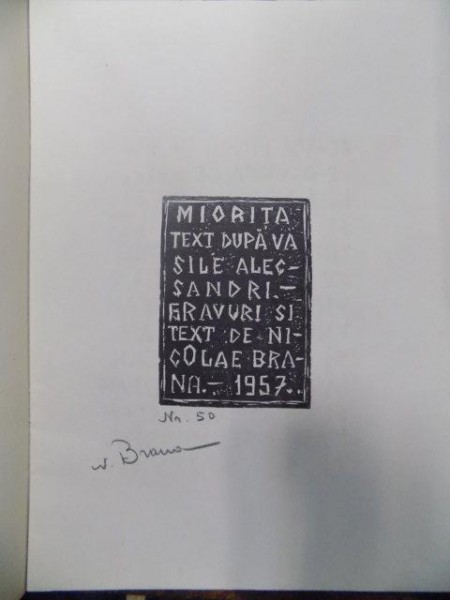 MIORIȚA
TEXT DUPĂ VA
SILE ALEC-
SANDRI.-
GRAVURI SI
TEXT DE NI-
COLAE BRA-
NA.- 1957.
Nr. 50
N. Brana